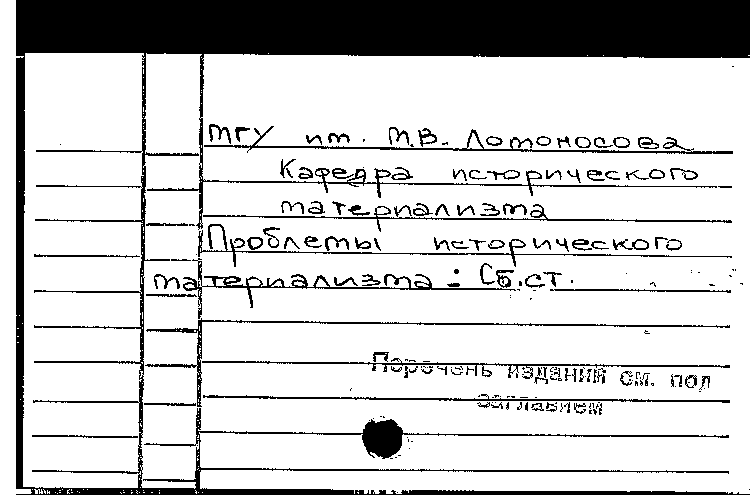 МГУ им. М.В. Ломоносова
Кафедра исторического
материализма
Проблемы исторического
материализма : Сб.ст.
Перечень изданий см. под
заглавием